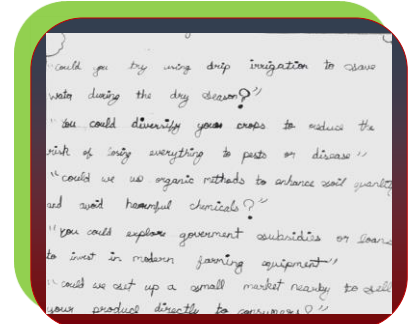 "could you try using drip irrigation to save
water during the dry season?"
"You could diversify your crops to reduce the
risk of losing everything to pests or disease"
"could we us organic methods to enhance soil quantity
and avoid harmful chemicals?"
"you could explore goverment subsidies or loans
to invest in modern farming equipment"
"could we set up a small market nearby to sell
your product directly to consumers?"